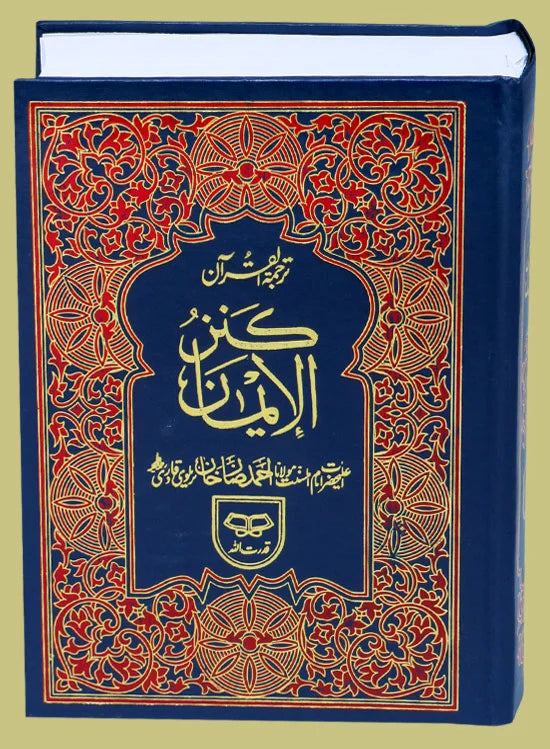 ترجمۃ القرآن
کنز
الإیمان
اعلیحضرت امام اہلسنت مولانا احمد رضا خان بریلوی قادری
قدرت اللہ